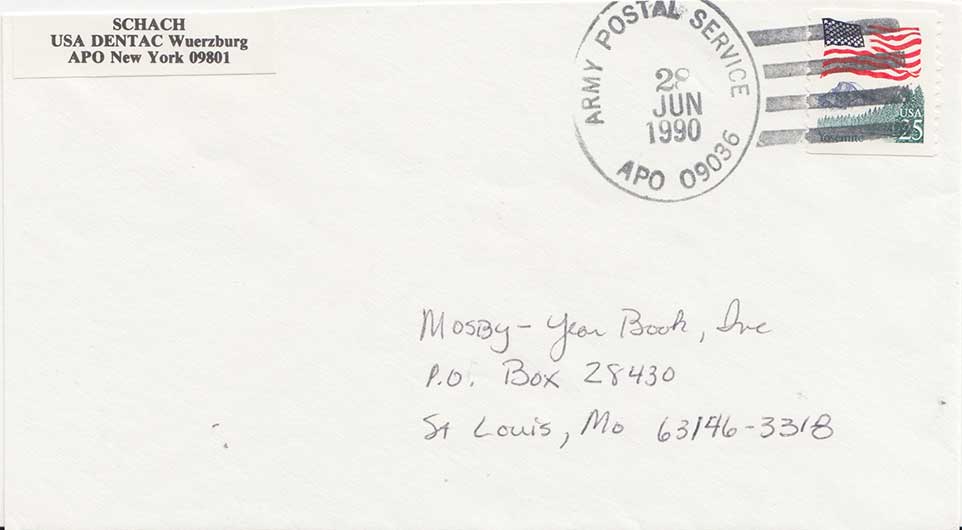 SCHACH
USA DENTAC Wuerzburg
APO New York 09801
ARMY POSTAL SERVICE
28
JUN
1990
APO 09036
USA
25
Yosemite
Mosby-Year Book, Inc
P.O. Box 28430
St Louis, Mo 63146-3318